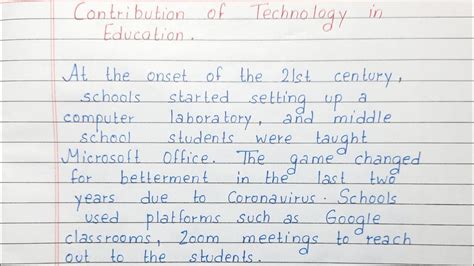 Contribution of Technology in
Education.
At the onset of the 21st century,
schools started setting up a
computer laboratory, and middle
school students were taught
Microsoft Office. The game changed
for betterment in the last two
years due to Coronavirus. Schools
used platforms such as Google
classrooms, Zoom meetings to reach
out to the students.